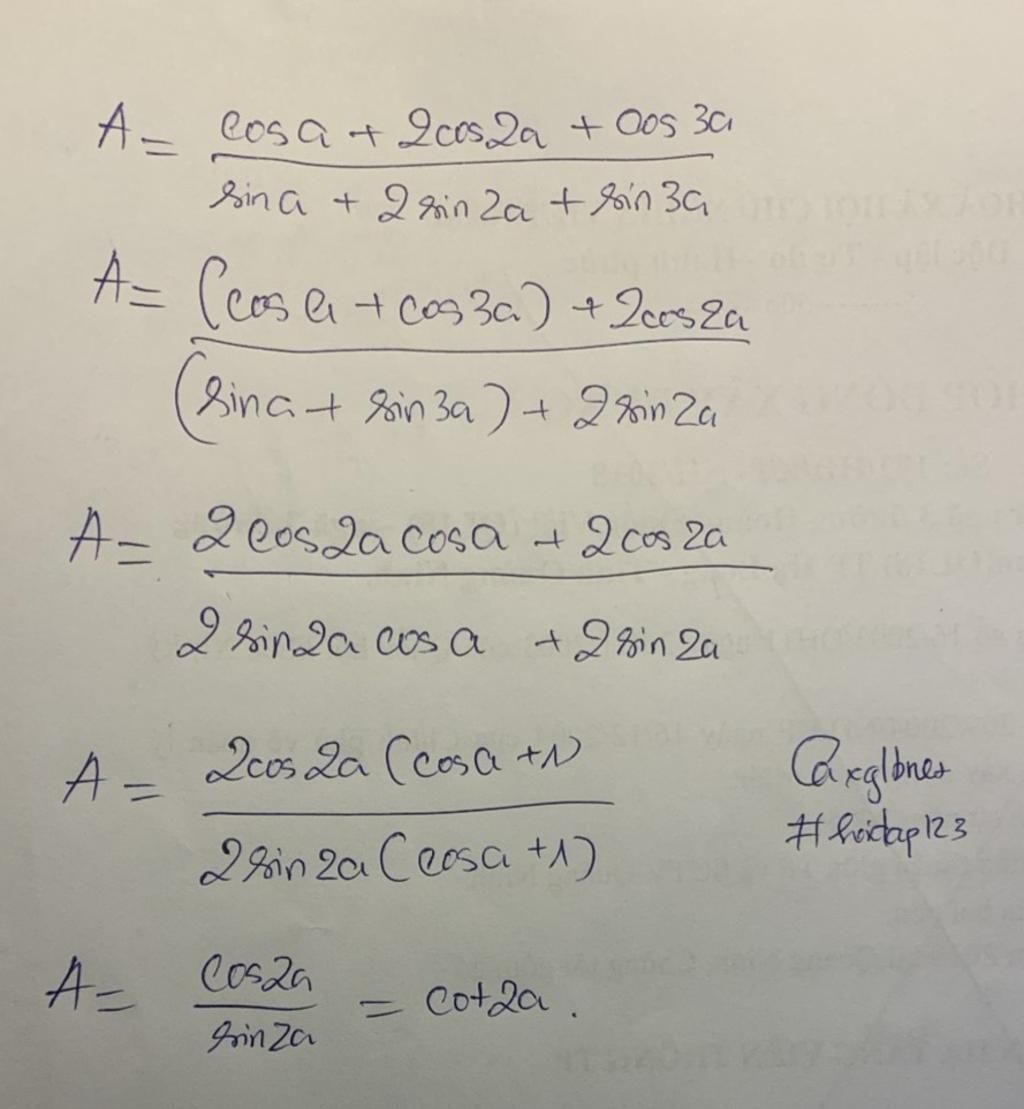 A = (cos a + 2cos2a + cos 3a) / (sin a + 2 sin 2a + sin 3a)
A = ((cos a + cos 3a) + 2cos2a) / ((sin a + sin 3a) + 2 sin 2a)
A = (2cos2a cosa + 2cos2a) / (2 sin2a cos a + 2 sin 2a)
A = (2cos 2a (cosa + 1)) / (2 sin 2a (cosa + 1))
@axglbner
#hoidap123
A = cos2a / sin2a = cot2a .